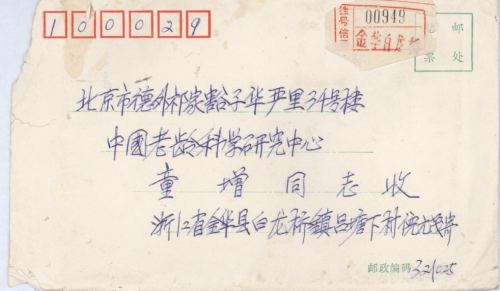 100029
挂号信
00949
金华白龙桥
邮
票 处
北京市德外祁家豁子华严里34号楼
中國老龄科学研究中心
童增同志收
浙江省金华县白龙桥鎮吕塘下村倪 寄
邮政编码 321025